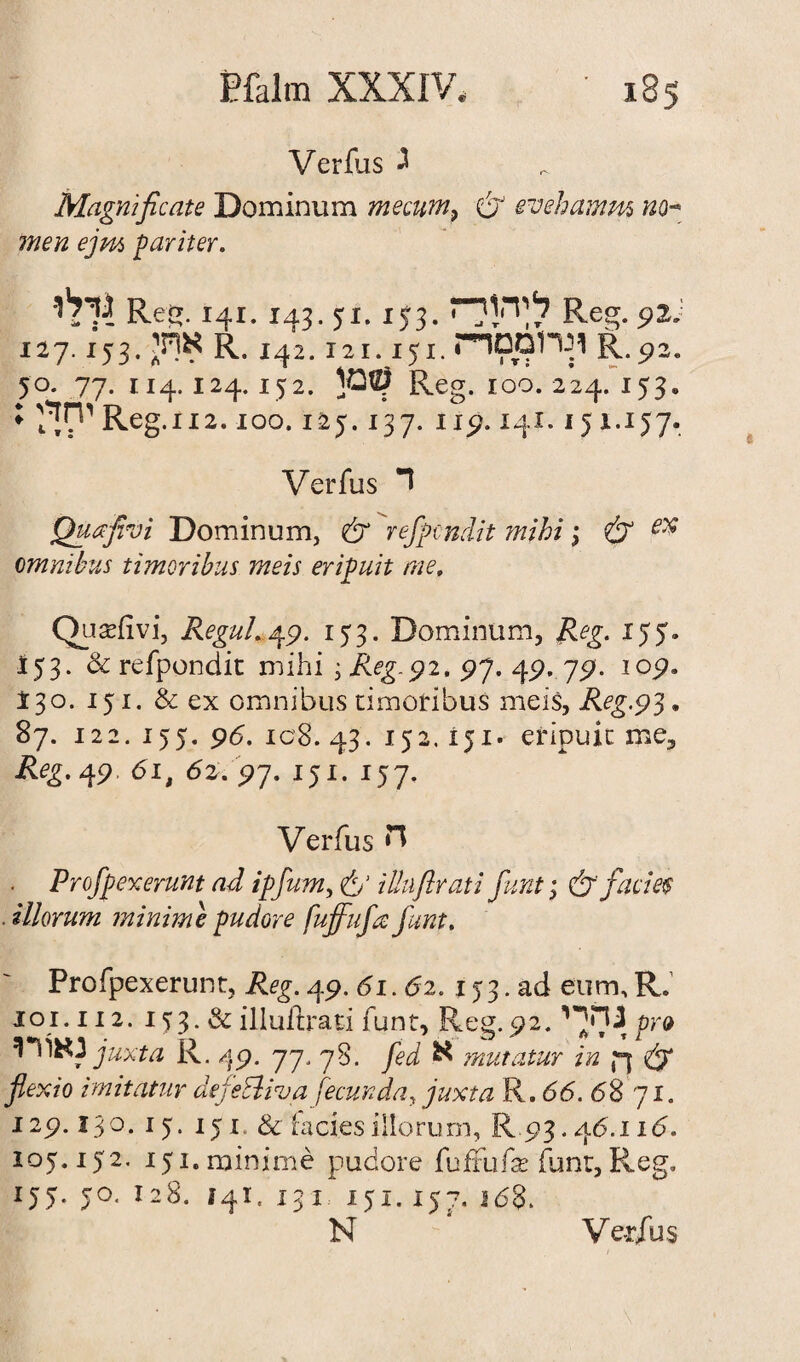 Pſalm XXXIV. 185
Verſus
Magnificate Dominum mecum, & evehamus no-
men ejus pariter.
Reg. 141. 143. 51. 153. Reg. 92.
127. 153. R. 142. 121. 151. R. 92.
50. 77. 114. 124. 152. Reg. 100. 224. 153.
Reg. 112. 100. 125. 137. 119. 141. 151. 157.
Verſus
Quæſivi Dominum, & reſpondit mihi; & ex
omnibus timoribus meis eripuit me.
Quæſivi, Regul. 49. 153. Dominum, Reg. 155.
153. & reſpondit mihi; Reg. 92. 97. 49. 79. 109.
130. 151. & ex omnibus timoribus meis, Reg. 93.
87. 122. 155. 96. 108. 43. 152. 151. eripuit me,
Reg. 49. 61, 62. 97. 151. 157.
Verſus
Proſpexerunt ad ipſum, & illuſtrati ſunt; & facies
illorum minimè pudore ſuffuſæ ſunt.
Proſpexerunt, Reg. 49. 61. 62. 153. ad eum, R.
101. 112. 153. & illuſtrati ſunt, Reg. 92. pro
juxta R. 49. 77. 78. ſed א mutatur in & 
flexio imitatur defectiva ſecunda, juxta R. 66. 68 71.
129. 130. 15. 151. & facies illorum, R 93. 46. 116.
105. 152. 151. minimè pudore ſuffuſæ ſunt, Reg.
155. 50. 128. 141. 131 151. 157. 168.
N Verſus